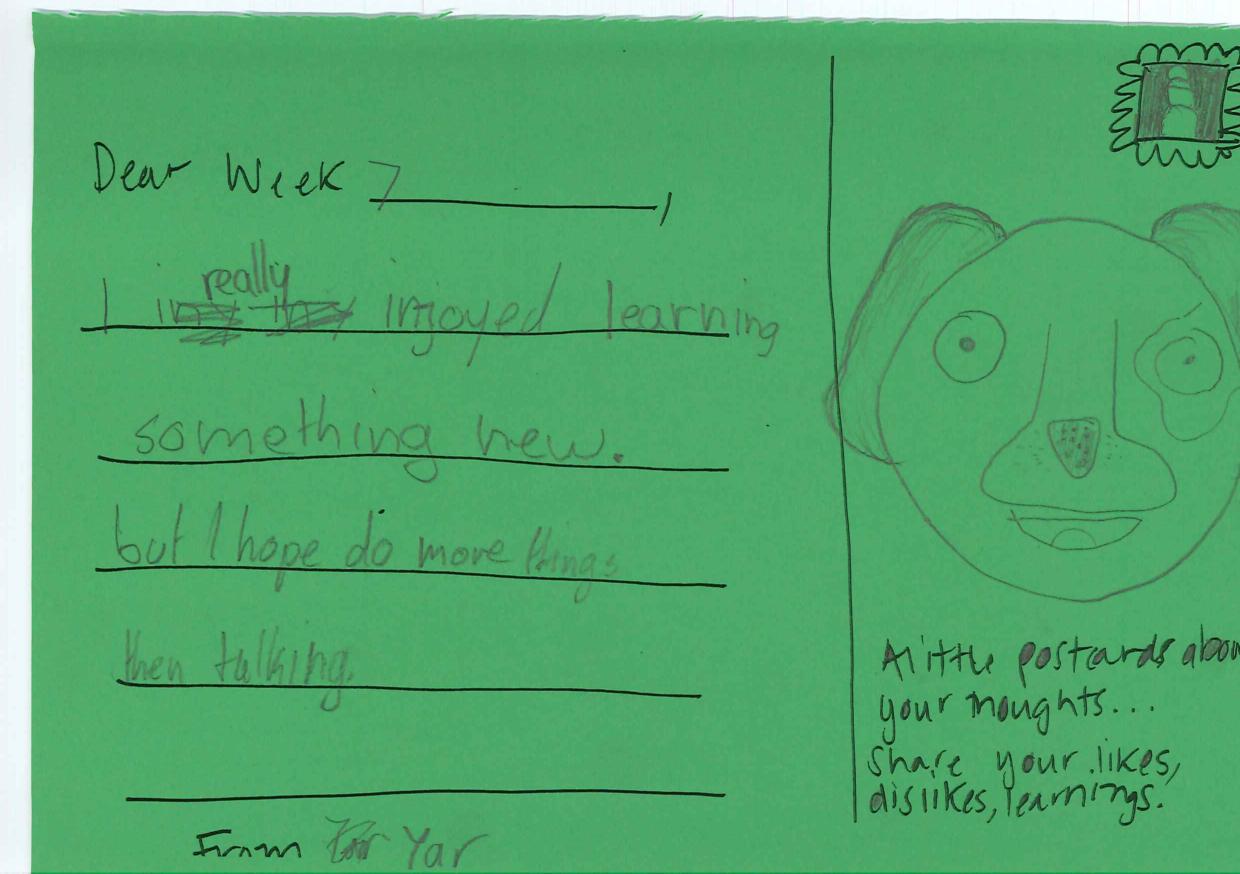 Dear Week 7,
I really injoyed learning
something new.
but I hope do more things
then talking.
From Yar
A little postcards abou
your thoughts...
Share your likes,
dislikes, learnings.